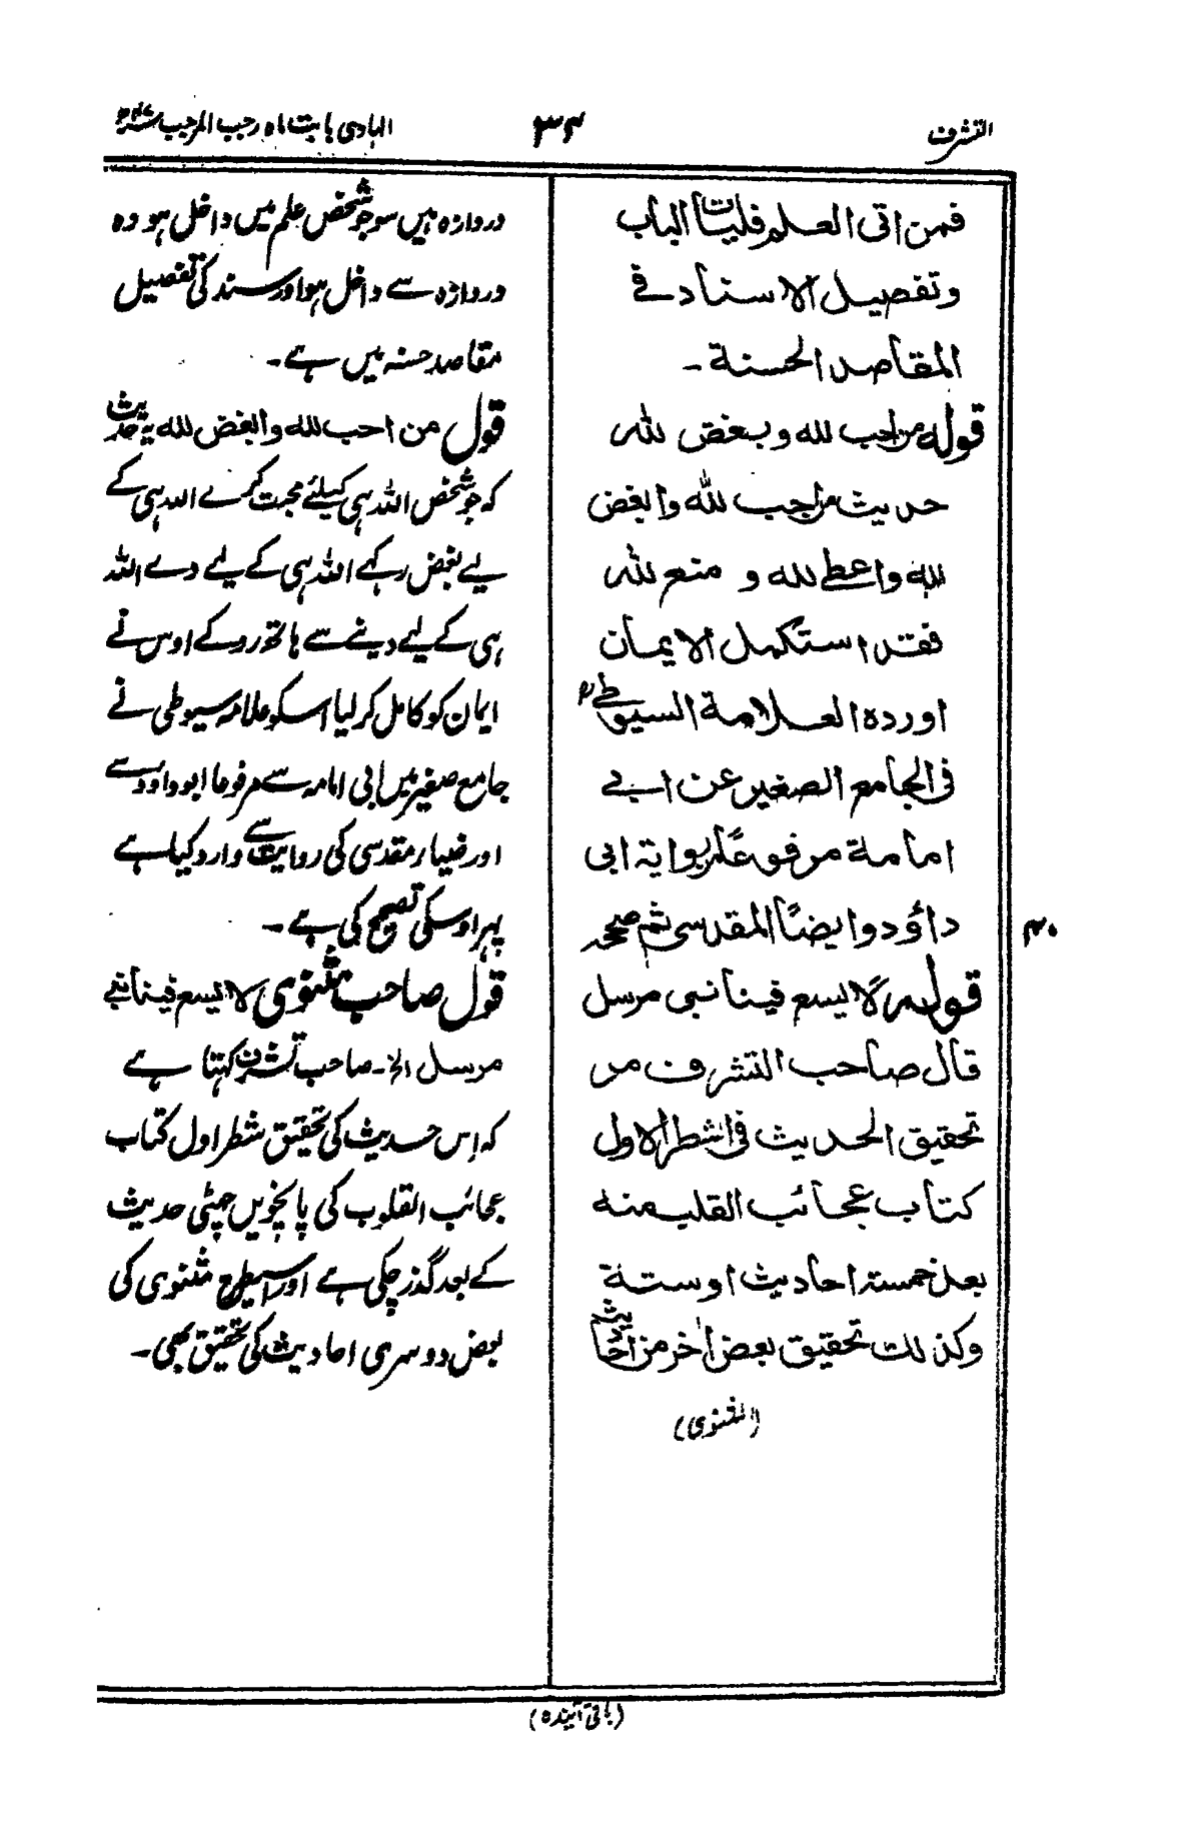 التشرف
۳۴
الہادی بابت ماہ رجب المرجب
فمن اتی العلم فلیأت الباب
وتفصیل الاسناد فے
المقاصد الحسنة۔
قولہ من احب للہ وبغض للہ
حدیث من احب للہ وابغض
للہ واعطے للہ و منع للہ
فقد استکمل الایمان
اوردہ العلامة السیوطے رح
فی الجامع الصغیر عن ابے
امامة مرفوعًا بروایة ابی
داؤد وایضًا المقدسی ثم صححہ
۳۰
قولہ لا یسع فینا نبی مرسل
قال صاحب التشرف مر
تحقیق الحدیث فی الشطر الاول
کتاب عجائب القلب منہ
بعد خمسة احادیث اوستة
وکذلک تحقیق بعض اٰخر من احادیث
(المثنوی)
دروازہ ہیں سو جو شخص علم میں داخل ہو وہ
دروازہ سے داخل ہو اور سند کی تفصیل
مقاصد حسنہ میں ہے۔
قول من احب للہ وابغض للہ یہ حدیث
کہ جو شخص اللہ ہی کیلئے محبت کرے اللہ ہی کے
لیے بغض رکہے اللہ ہی کے لیے دے اللہ
ہی کے لیے دینے سے ہاتھ روکے اوس نے
ایمان کو کامل کر لیا اسکو علامہ سیوطی نے
جامع صغیر میں ابی امامہ سے مرفوعا ابو داود سے
اور ضیاء مقدسی کی روایت سے وارد کیا ہے
پہر اوسکی تصحیح کی ہے۔
قول صاحب مثنوی لا یسع فینا نبے
مرسل الخ۔ صاحب تشرف کہتا ہے
کہ اس حدیث کی تحقیق شطر اول کتاب
عجائب القلوب کی پانچویں چہٹی حدیث
کے بعد گذر چکی ہے اور اسیطرح مثنوی کی
بعض دوسری احادیث کی تحقیق بھی۔
(باقی آئندہ)